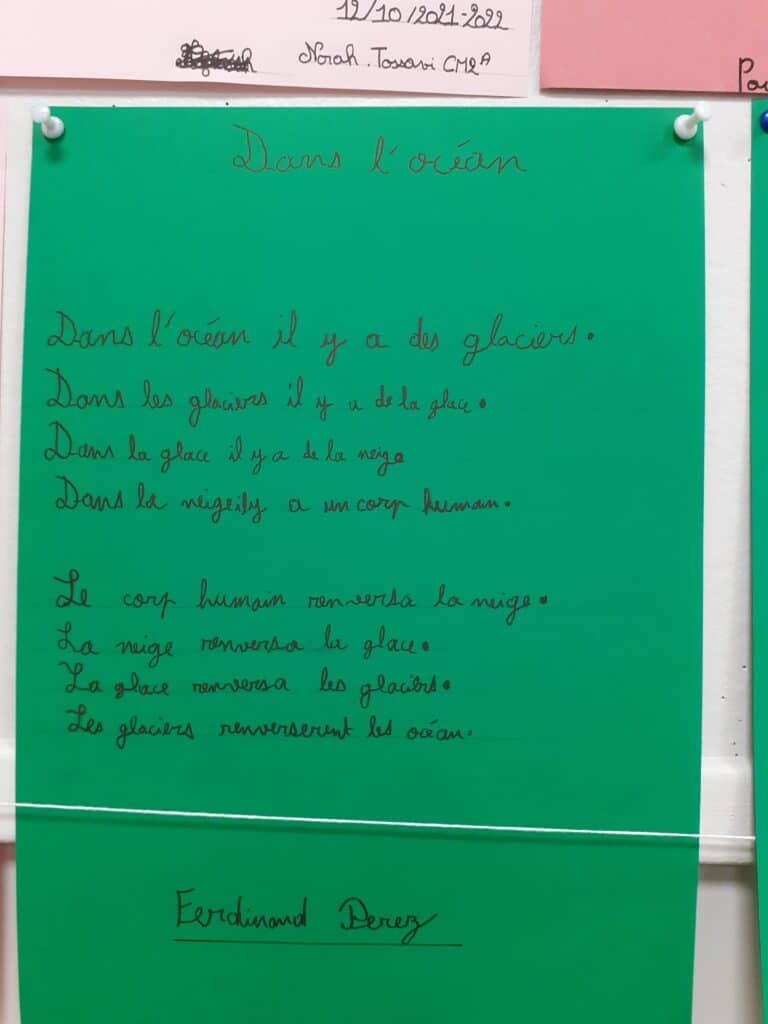 12/10/2021-2022
Norah. Tossavi CM2A
Dans l'océan
Dans l'océan il y a des glaciers.
Dans les glaciers il y a de la glace.
Dans la glace il y a de la neige
Dans la neige il y a un corp humain.
Le corp humain renversa la neige.
La neige renversa la glace.
La glace renversa les glaciers.
Les glaciers renverserent les océan.
Ferdinand Perez